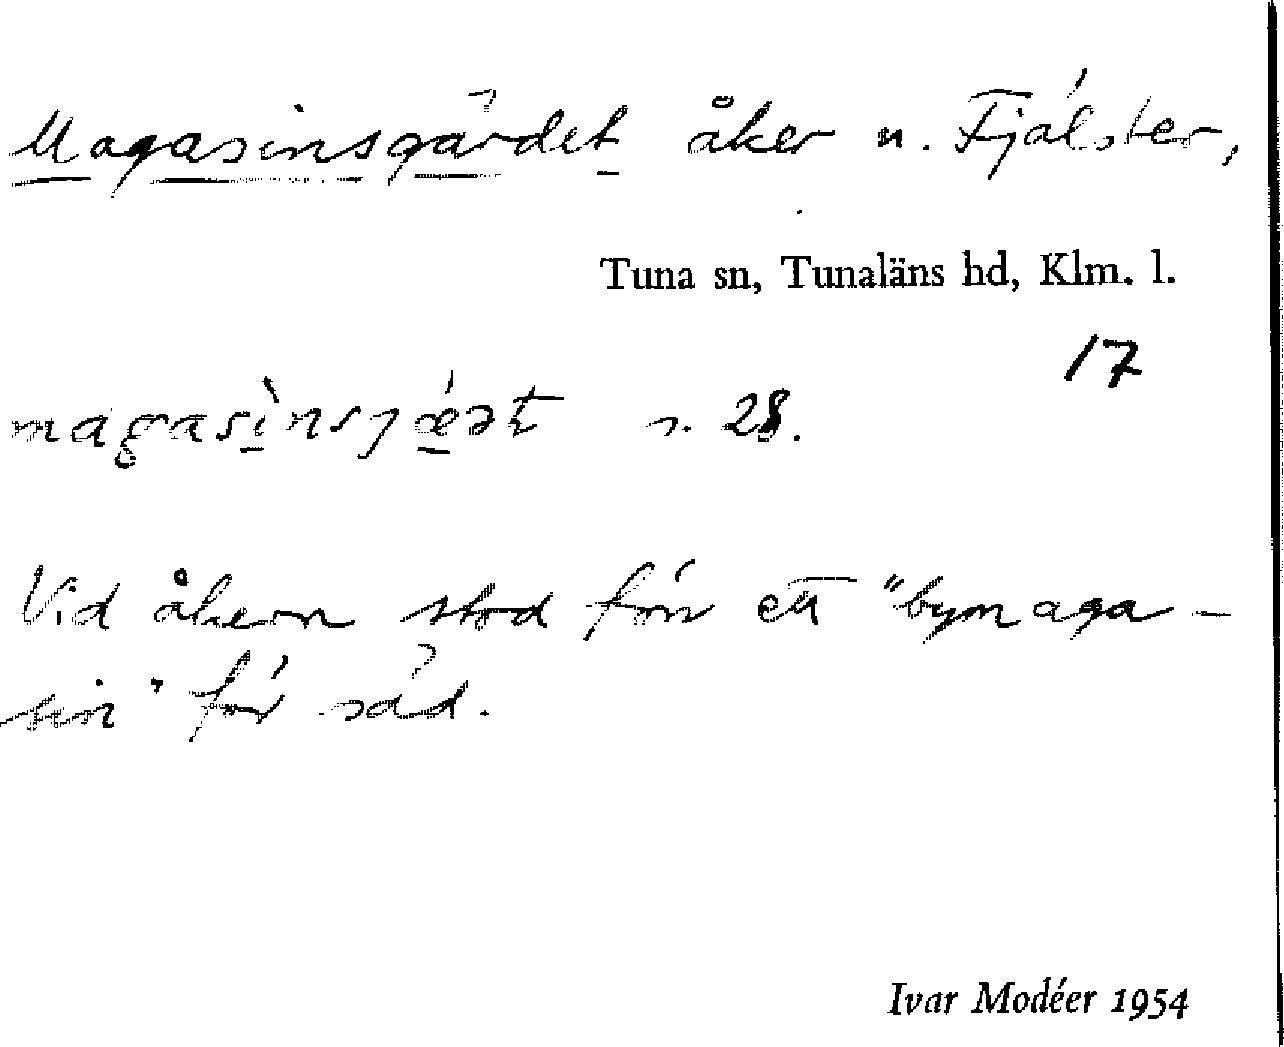 Magasinsgärdet åker n. Fjälster,
Tuna sn, Tunaläns hd, Klm. l.
17
magasìnsjǽət s. 28.
Vid åkern stod förr ett "bymaga-
sin" för säd.
Ivar Modéer 1954